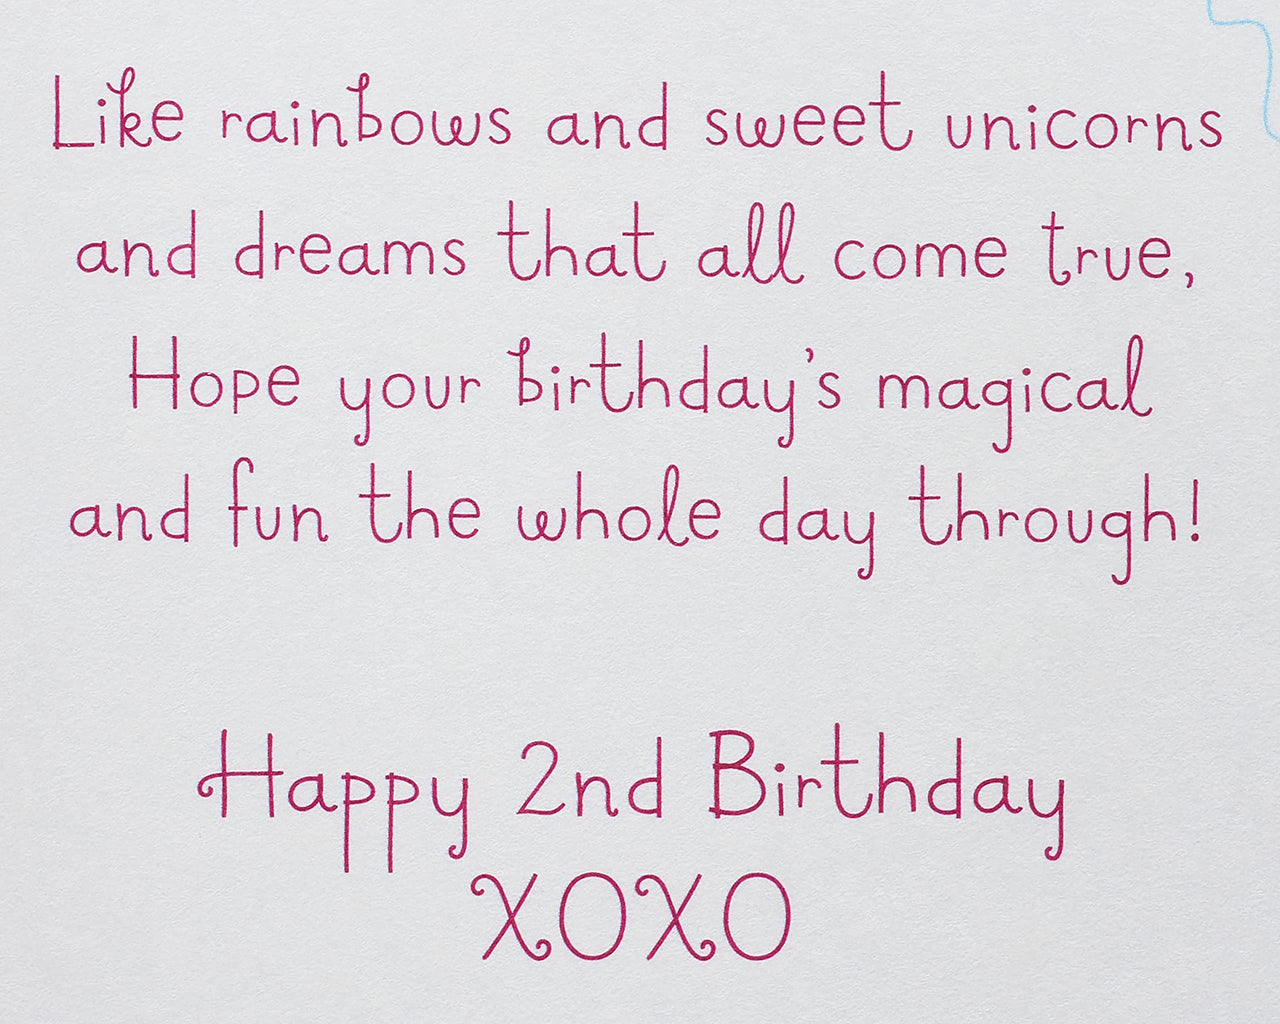 Like rainbows and sweet unicorns
and dreams that all come true,
Hope your birthday's magical
and fun the whole day through!
Happy 2nd Birthday
XOXO